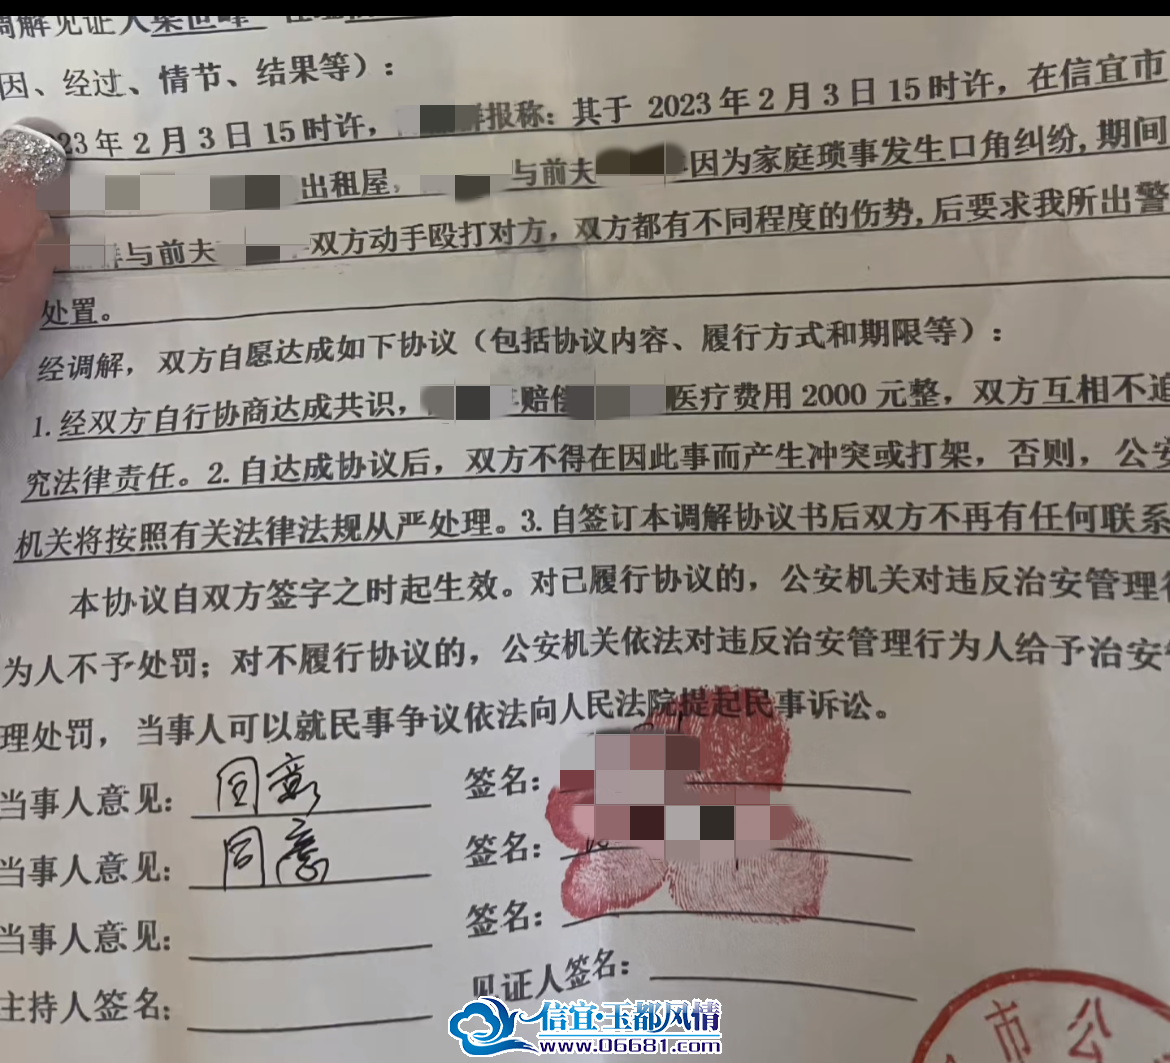 调解见证人梁世峰
因、经过、情节、结果等）：
23年2月3日15时许，群报称：其于 2023年2月3日15时许，在信宜市
出租屋，与前夫因为家庭琐事发生口角纠纷,期间
群与前夫双方动手殴打对方，双方都有不同程度的伤势,后要求我所出警
处置。
经调解，双方自愿达成如下协议（包括协议内容、履行方式和期限等）：
1.经双方自行协商达成共识，赔偿医疗费用2000元整，双方互相不追
究法律责任。2.自达成协议后，双方不得在因此事而产生冲突或打架，否则，公安
机关将按照有关法律法规从严处理。3.自签订本调解协议书后双方不再有任何联系
本协议自双方签字之时起生效。对已履行协议的，公安机关对违反治安管理行
为人不予处罚；对不履行协议的，公安机关依法对违反治安管理行为人给予治安管
理处罚，当事人可以就民事争议依法向人民法院提起民事诉讼。
当事人意见：同意 签名：
当事人意见：同意 签名：
当事人意见： 签名：
主持人签名： 见证人签名：
市公
信宜·玉都风情
www.06681.com